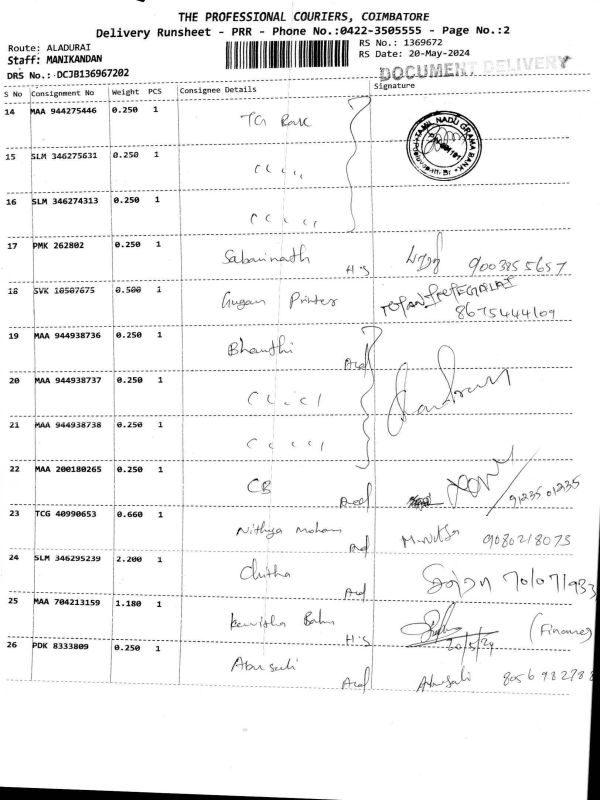 THE PROFESSIONAL COURIERS, COIMBATORE
Delivery Runsheet - PRR - Phone No.:0422-3505555 - Page No.:2
Route: ALADURAI
Staff: MANIKANDAN
DRS No.: DCJB136967202
RS No.: 1369672
RS Date: 20-May-2024
DOCUMENT DELIVERY
S No Consignment No Weight PCS Consignee Details Signature
14 MAA 944275446 0.250 1 TG Bank
TAMIL NADU GRAMA BANK
15 SLM 346275631 0.250 1 " "
16 SLM 346274313 0.250 1 " "
17 PMK 262802 0.250 1 Sabarinath H's 9003855657
18 SVK 10507675 0.500 1 Gugan Printer 8675444109
19 MAA 944938736 0.250 1 Bharathi
20 MAA 944938737 0.250 1 " "
21 MAA 944938738 0.250 1 " "
22 MAA 200180265 0.250 1 CB 9123501235
23 TCG 40990653 0.660 1 Nithya Mohan 9080218073
24 SLM 346295239 2.200 1 Chitha
25 MAA 704213159 1.180 1 Kavitha Babu H's 20/5/24 (Finance)
26 PDK 8333809 0.250 1 Abusali Abusali